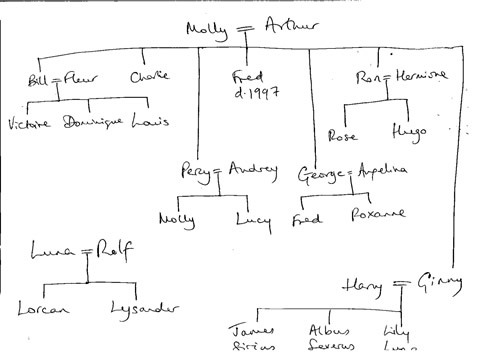 Molly = Arthur
Bill = Fleur
Charlie
Fred
d.1997
Ron = Hermione
Victoire Dominique Louis
Rose
Hugo
Percy = Audrey
George = Angelina
Molly
Lucy
Fred
Roxanne
Luna = Rolf
Lorcan
Lysander
Harry = Ginny
James
Sirius
Albus
Severus
Lily
Luna